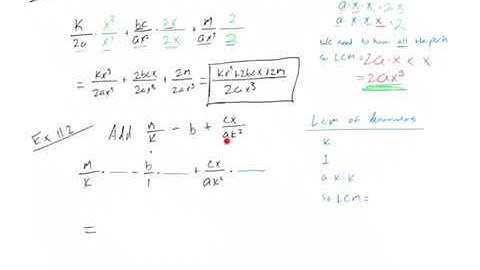 K/2a · x³/x³ + bc/ax² · 2x/2x + m/ax³ · 2/2
= Kx³/2ax³ + 2bcx/2ax³ + 2m/2ax³ = Kx³+2bcx+2m/2ax³
a·x·x·2x
a·x·x·x·2
We need to have all the parts
so LCM = 2a·x·x·x
= 2ax³
Ex 112 Add m/K - b + cx/ak²
m/K · __ - b/1 · __ + cx/ak² · __
=
LCM of denominators
K
1
a·k·k
so LCM =